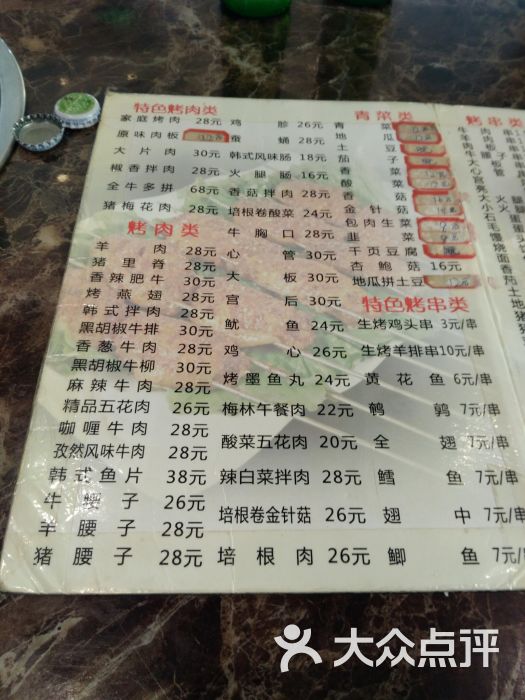 特色烤肉类
家庭烤肉 28元
原味肉板
大片肉 30元
椒香拌肉 28元
全牛多拼 68元
猪梅花肉 28元
烤肉类
羊肉 28元
猪里脊 28元
香辣肥牛 30元
烤燕翅 28元
韩式拌肉 28元
黑胡椒牛排 30元
香葱牛肉 28元
黑胡椒牛柳 30元
麻辣牛肉 28元
精品五花肉 26元
咖喱牛肉 28元
孜然风味牛肉 28元
韩式鱼片 38元
牛腰子 26元
羊腰子 28元
猪腰子 28元
鸡胗 26元
蚕蛹 28元
韩式风味肠 18元
火腿肠 16元
香菇拌肉 28元
培根卷酸菜 24元
牛胸口 28元
心管 30元
大板 30元
宫后 30元
鱿鱼 24元
鸡心 26元
烤墨鱼丸 24元
梅林午餐肉 22元
酸菜五花肉 20元
辣白菜拌肉 28元
培根卷金针菇 26元
培根肉 26元
青菜类
青菜
地瓜
土豆
茄子
香菜
酸菜
香菇
金针菇
包肉生菜
韭菜
干页豆腐
杏鲍菇 16元
地瓜拼土豆
特色烤串类
生烤鸡头串 3元/串
生烤羊排串 10元/串
黄花鱼 6元/串
鹌鹑 7元/串
全翅 7元/串
鳕鱼 7元/串
翅中 7元/串
鲫鱼 7元/串
烤串类
大众点评